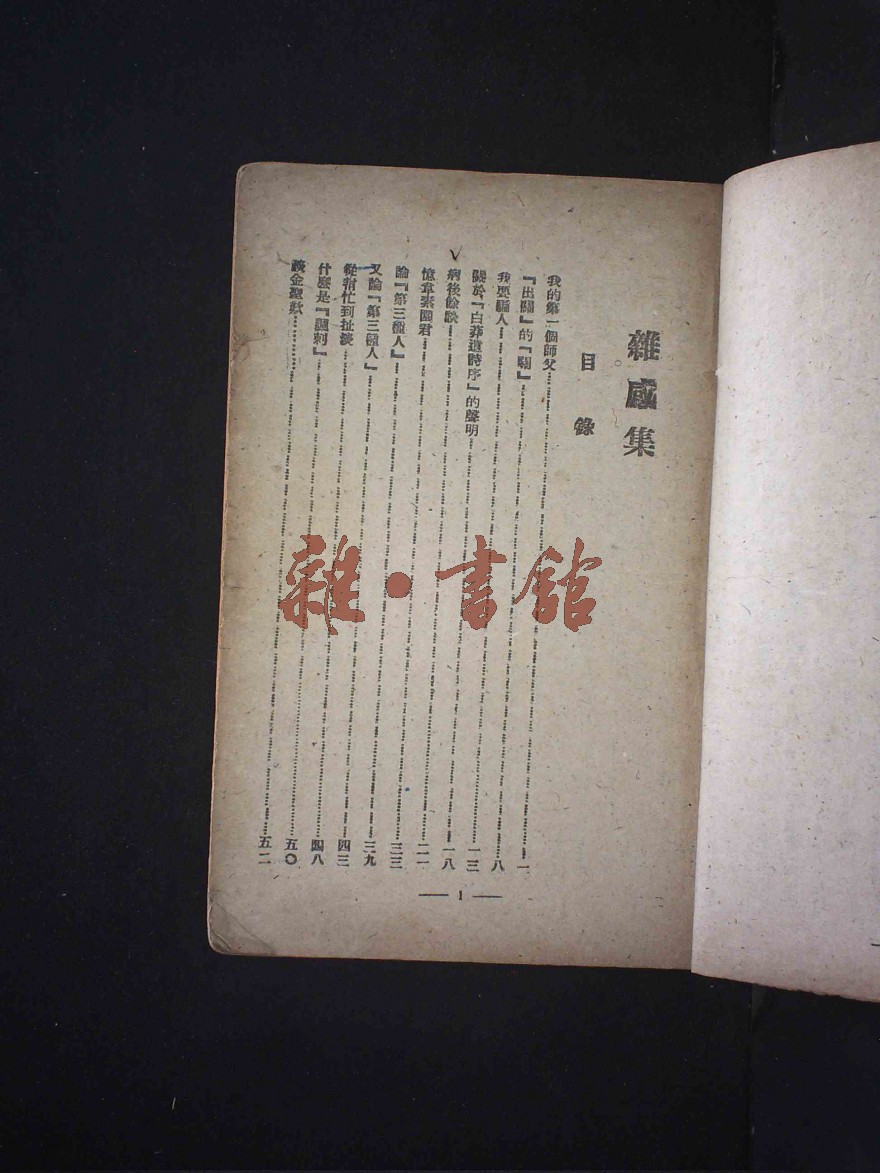 雜感集
目錄
我的第一個師父……一
『出關』的『關』……八
我要騙人……一三
關於『白莽遺詩序』的聲明……一八
病後餘談……二一
憶韋素園君……三三
論『第三種人』……三九
又論『第三種人』……四三
從幫忙到扯淡……四八
什麼是『諷刺』……五〇
談金聖歎……五二
— 1 —
雜·書館